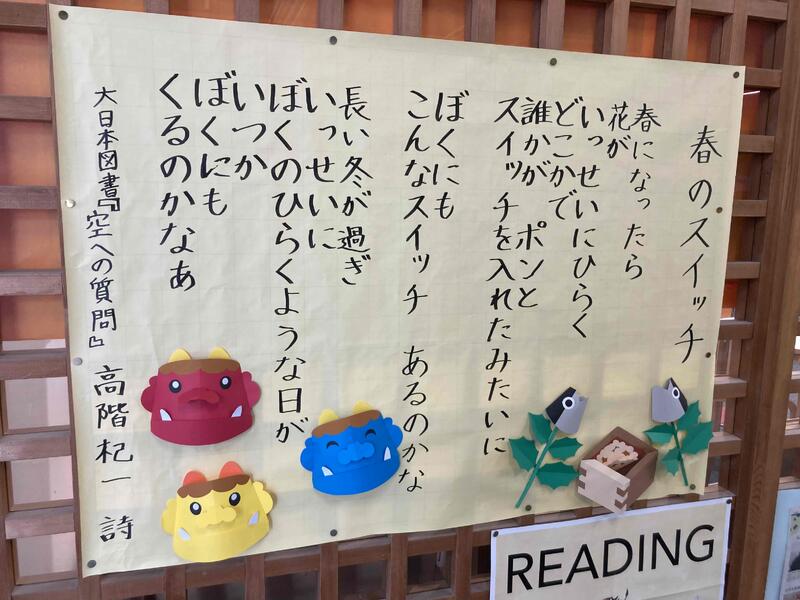 春のスイッチ
春になったら
花が
いっせいにひらく
どこかで
誰かが　ポンと
スイッチを入れたみたいに
ぼくにも
こんなスイッチ　あるのかな
長い冬が過ぎ
いっせいに
ぼくのひらくような日が
いつか
ぼくにも
くるのかなぁ
大日本図書『空への質問』　高階杞一　詩
READING